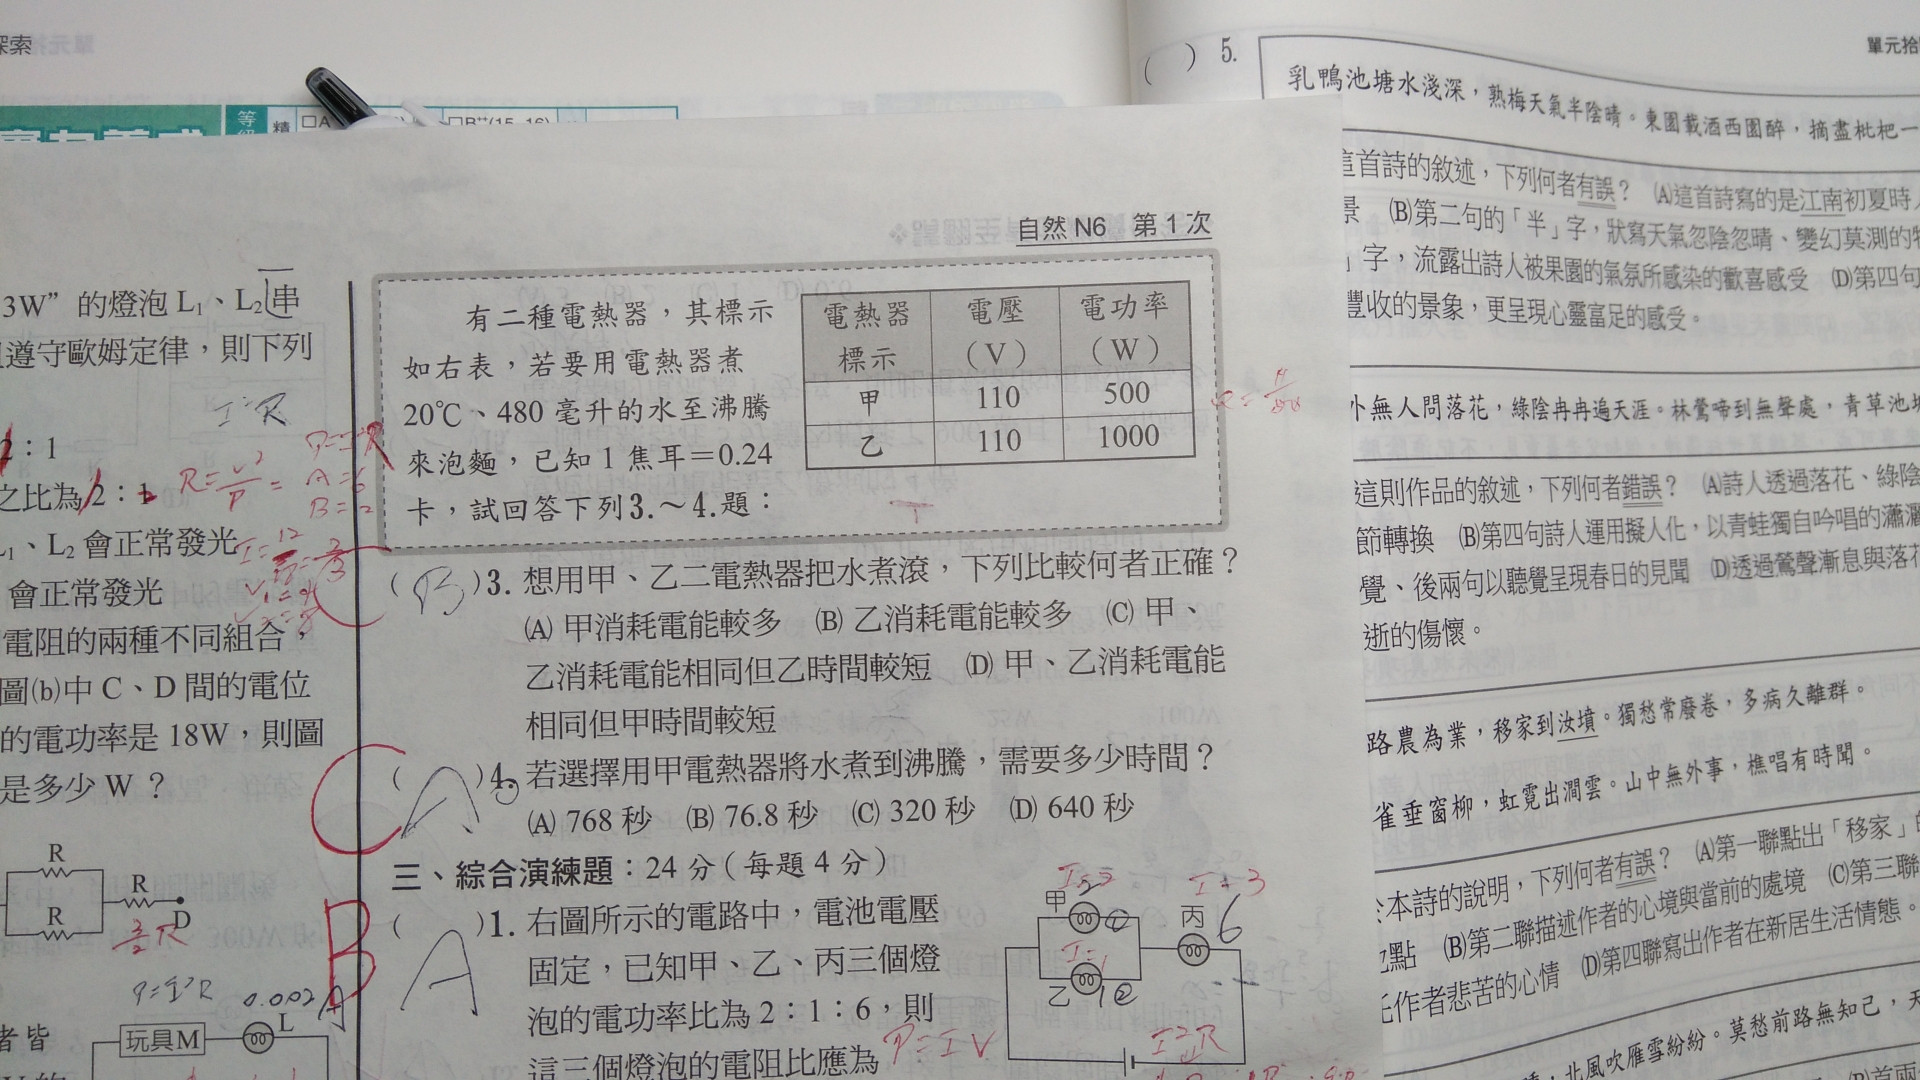 探索
等
精
自然 N6 第 1 次
3W” 的燈泡 L₁、L₂ 串
遵守歐姆定律，則下列
I²R
2：1
之比為 2：1
R=V²/P=
P=I²R
L₁、L₂ 會正常發光
會正常發光
電阻的兩種不同組合，
圖(b)中 C、D 間的電位
的電功率是 18W，則圖
是多少 W？
R
R
R
D
3/2 R
P=I²R
0.002A
L
玩具M
者皆
有二種電熱器，其標示
如右表，若要用電熱器煮
20℃、480 毫升的水至沸騰
來泡麵，已知 1 焦耳＝0.24
卡，試回答下列3.～4.題：
電熱器標示 電壓（V） 電功率（W）
甲 110 500
乙 110 1000
( B )3. 想用甲、乙二電熱器把水煮滾，下列比較何者正確？
(A) 甲消耗電能較多 (B) 乙消耗電能較多 (C) 甲、
乙消耗電能相同但乙時間較短 (D) 甲、乙消耗電能
相同但甲時間較短
C
( A )4. 若選擇用甲電熱器將水煮到沸騰，需要多少時間？
(A) 768 秒 (B) 76.8 秒 (C) 320 秒 (D) 640 秒
三、綜合演練題：24 分（每題 4 分）
B
( A )1. 右圖所示的電路中，電池電壓
固定，已知甲、乙、丙三個燈
泡的電功率比為 2：1：6，則
這三個燈泡的電阻比應為
P=IV
甲
乙
丙
6
I=1
I²R
單元拾
( ) 5.
乳鴨池塘水淺深，熟梅天氣半陰晴。東園載酒西園醉，摘盡枇杷一
這首詩的敘述，下列何者有誤？ (A)這首詩寫的是江南初夏時
景 (B)第二句的「半」字，狀寫天氣忽陰忽晴、變幻莫測的
」字，流露出詩人被果園的氣氛所感染的歡喜感受 (D)第四句
豐收的景象，更呈現心靈富足的感受。
外無人問落花，綠陰冉冉遍天涯。林鶯啼到無聲處，青草池
這則作品的敘述，下列何者錯誤？ (A)詩人透過落花、綠陰
節轉換 (B)第四句詩人運用擬人化，以青蛙獨自吟唱的瀟灑
覺、後兩句以聽覺呈現春日的見聞 (D)透過鶯聲漸息與落花
逝的傷懷。
路農為業，移家到汝墳。獨愁常廢卷，多病久離群。
雀垂窗柳，虹霓出澗雲。山中無外事，樵唱有時聞。
於本詩的說明，下列何者有誤？ (A)第一聯點出「移家」
點 (B)第二聯描述作者的心境與當前的處境 (C)第三聯
作者悲苦的心情 (D)第四聯寫出作者在新居生活情態。
，北風吹雁雪紛紛。莫愁前路無知己，天